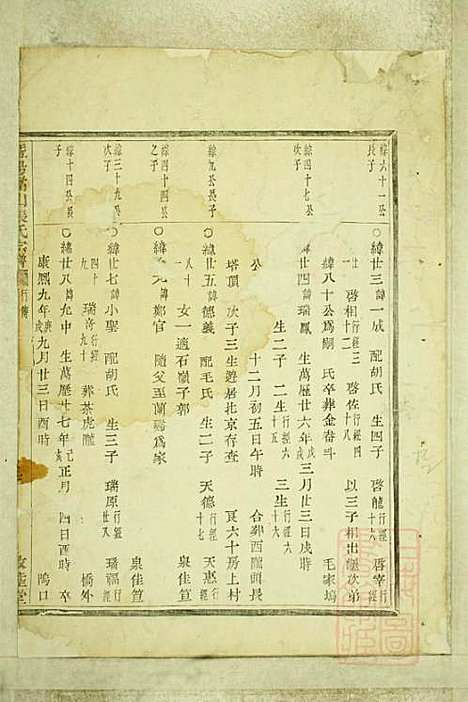 緯六十一公長子
○緯廿三諱一成 配胡氏 生四子 啓龍行經十六 啓宰行經
廿一 啓相行經十二 啓佐行經十八 以三子相出繼次弟
緯八十公爲嗣 氏卒葬金畚斗 毛家塢
緯四十七公次子
○緯廿四諱瑞鳳 生萬歷廿六年戊戌三月廿三日戌時
生二子 二生行經十五 三生行經十六
公 十二月初五日午時 合葬西隴頭長
塔頂 次子三生遊居北京存查 六十房上村
緯九公長子
○緯廿五諱德義 配毛氏 生二子 天德行經十七 天惠行經
八十 女一適石嶺子郭 泉佳笪
緯四十四公之子
鄭官 隨父至蘭谿爲家 泉佳笪
緯三十九公次子
○緯廿七諱小聖 配胡氏 生三子 瑞原行經廿又 瑞福行經
四十 瑞奇行經九十 葬茶虎隴 橋外
緯十四公長子
○緯廿八諱九中 生萬歷廿七年己亥正月 四日酉時 卒
康熙九年庚戌九月廿三日酉時 塢口
張氏宗譜